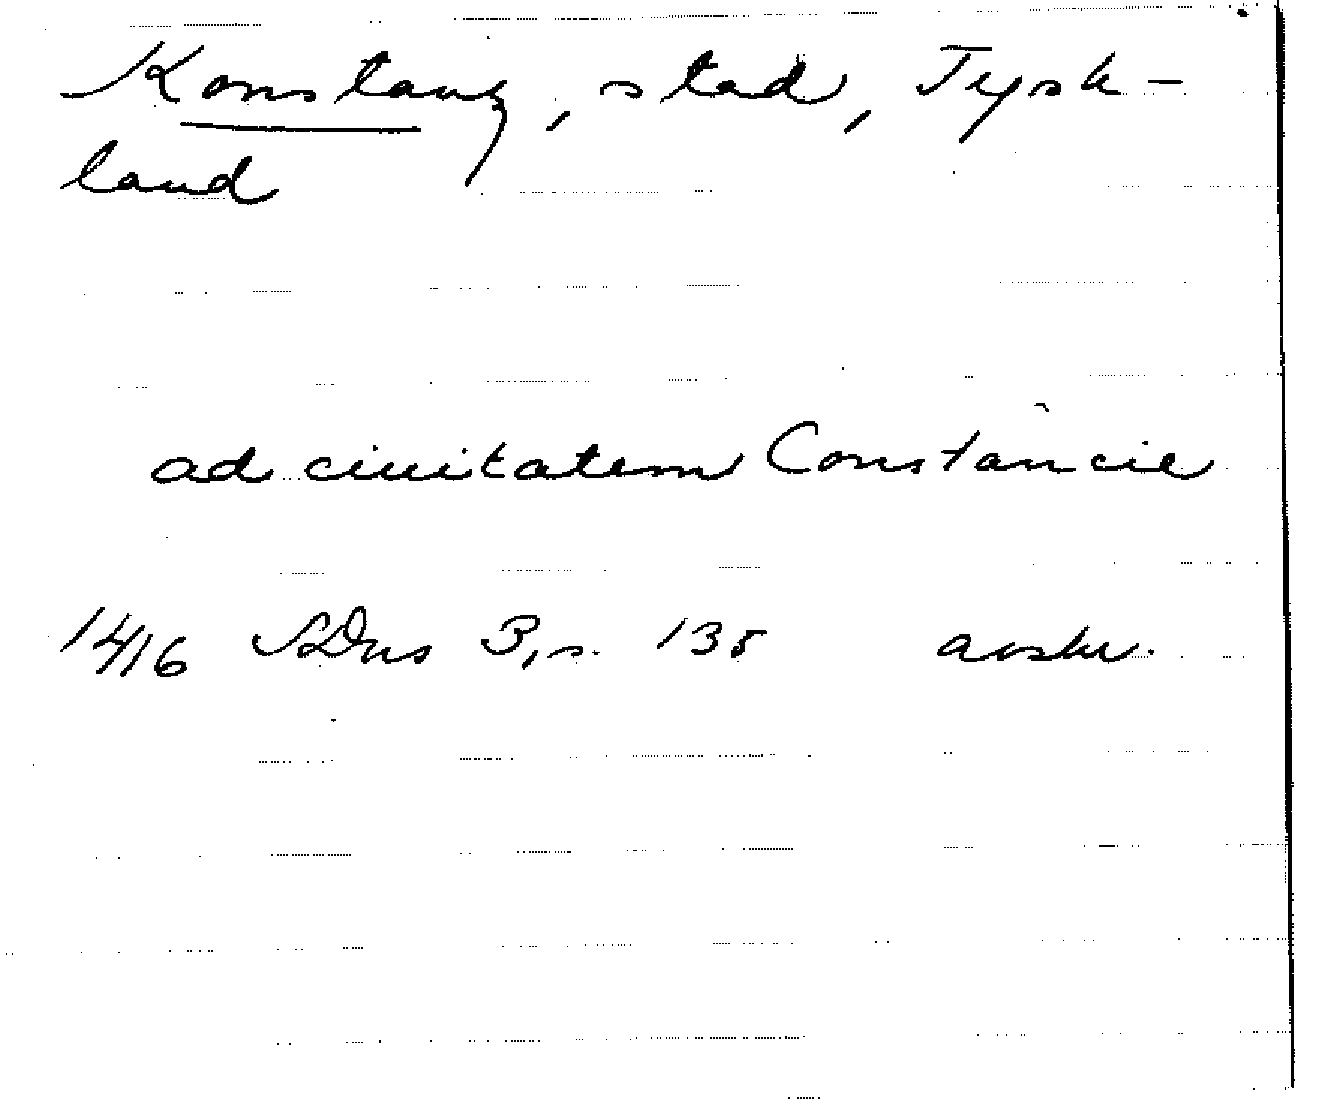 Konstanz, stad, Tysk-
land
ad ciuitatem Constancie
1416 SDns 3, s. 135 avskr.